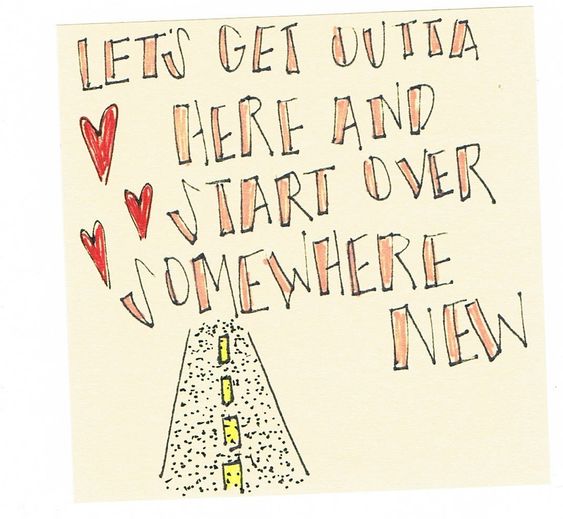 LET'S GET OUTTA
HERE AND
START OVER
SOMEWHERE
NEW